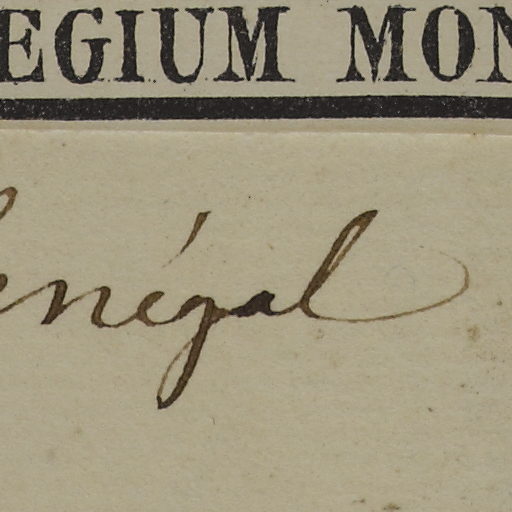 EGIUM MON
enégal